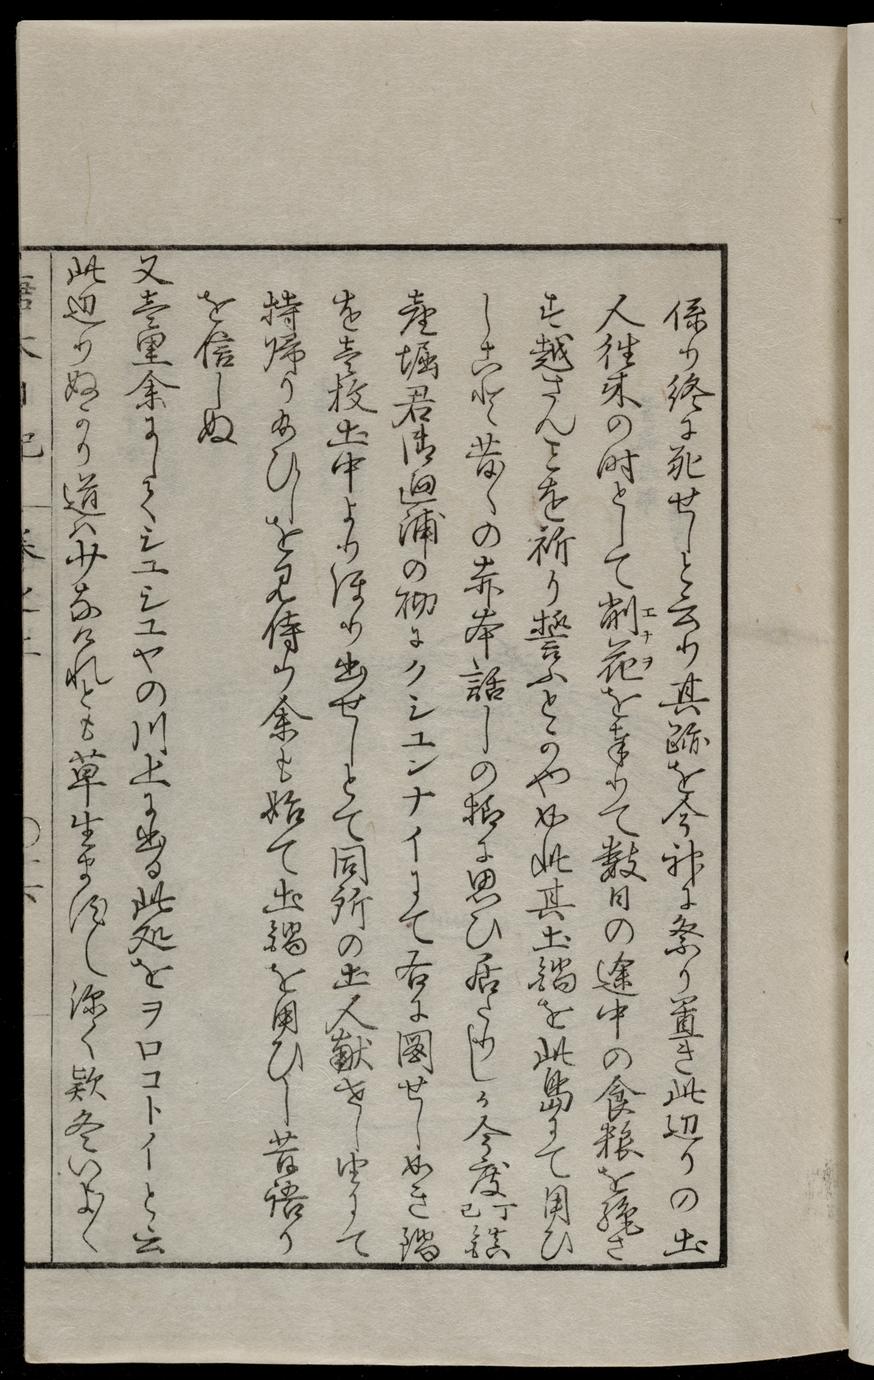 係り終に死せしと云り其跡を今神に祭り置き此辺りの土
人往来の時として削花を奉りて数日の途中の食粮を絶さ
エナヲ
ず越さんことを祈り誓ふとかや如此其土鍋を此島にて用ひ
しこと昔〱の赤本話しの様に思ひ居たりしが今度丁巳鎮
台堀君御廻浦の砌にクシユンナイにて右に図せし如き鍋
を壱枚土中よりほり出せしとて同所の土人献せし由にて
持帰り給ひしを見侍り余も始て土鍋を用ひし昔語り
を信しぬ
又壱里余にしてシユシユヤの川上に出る此処をヲロコトイと云
此辺りぬかり道は少なけれとも草生ます〱深く款冬いよ〱